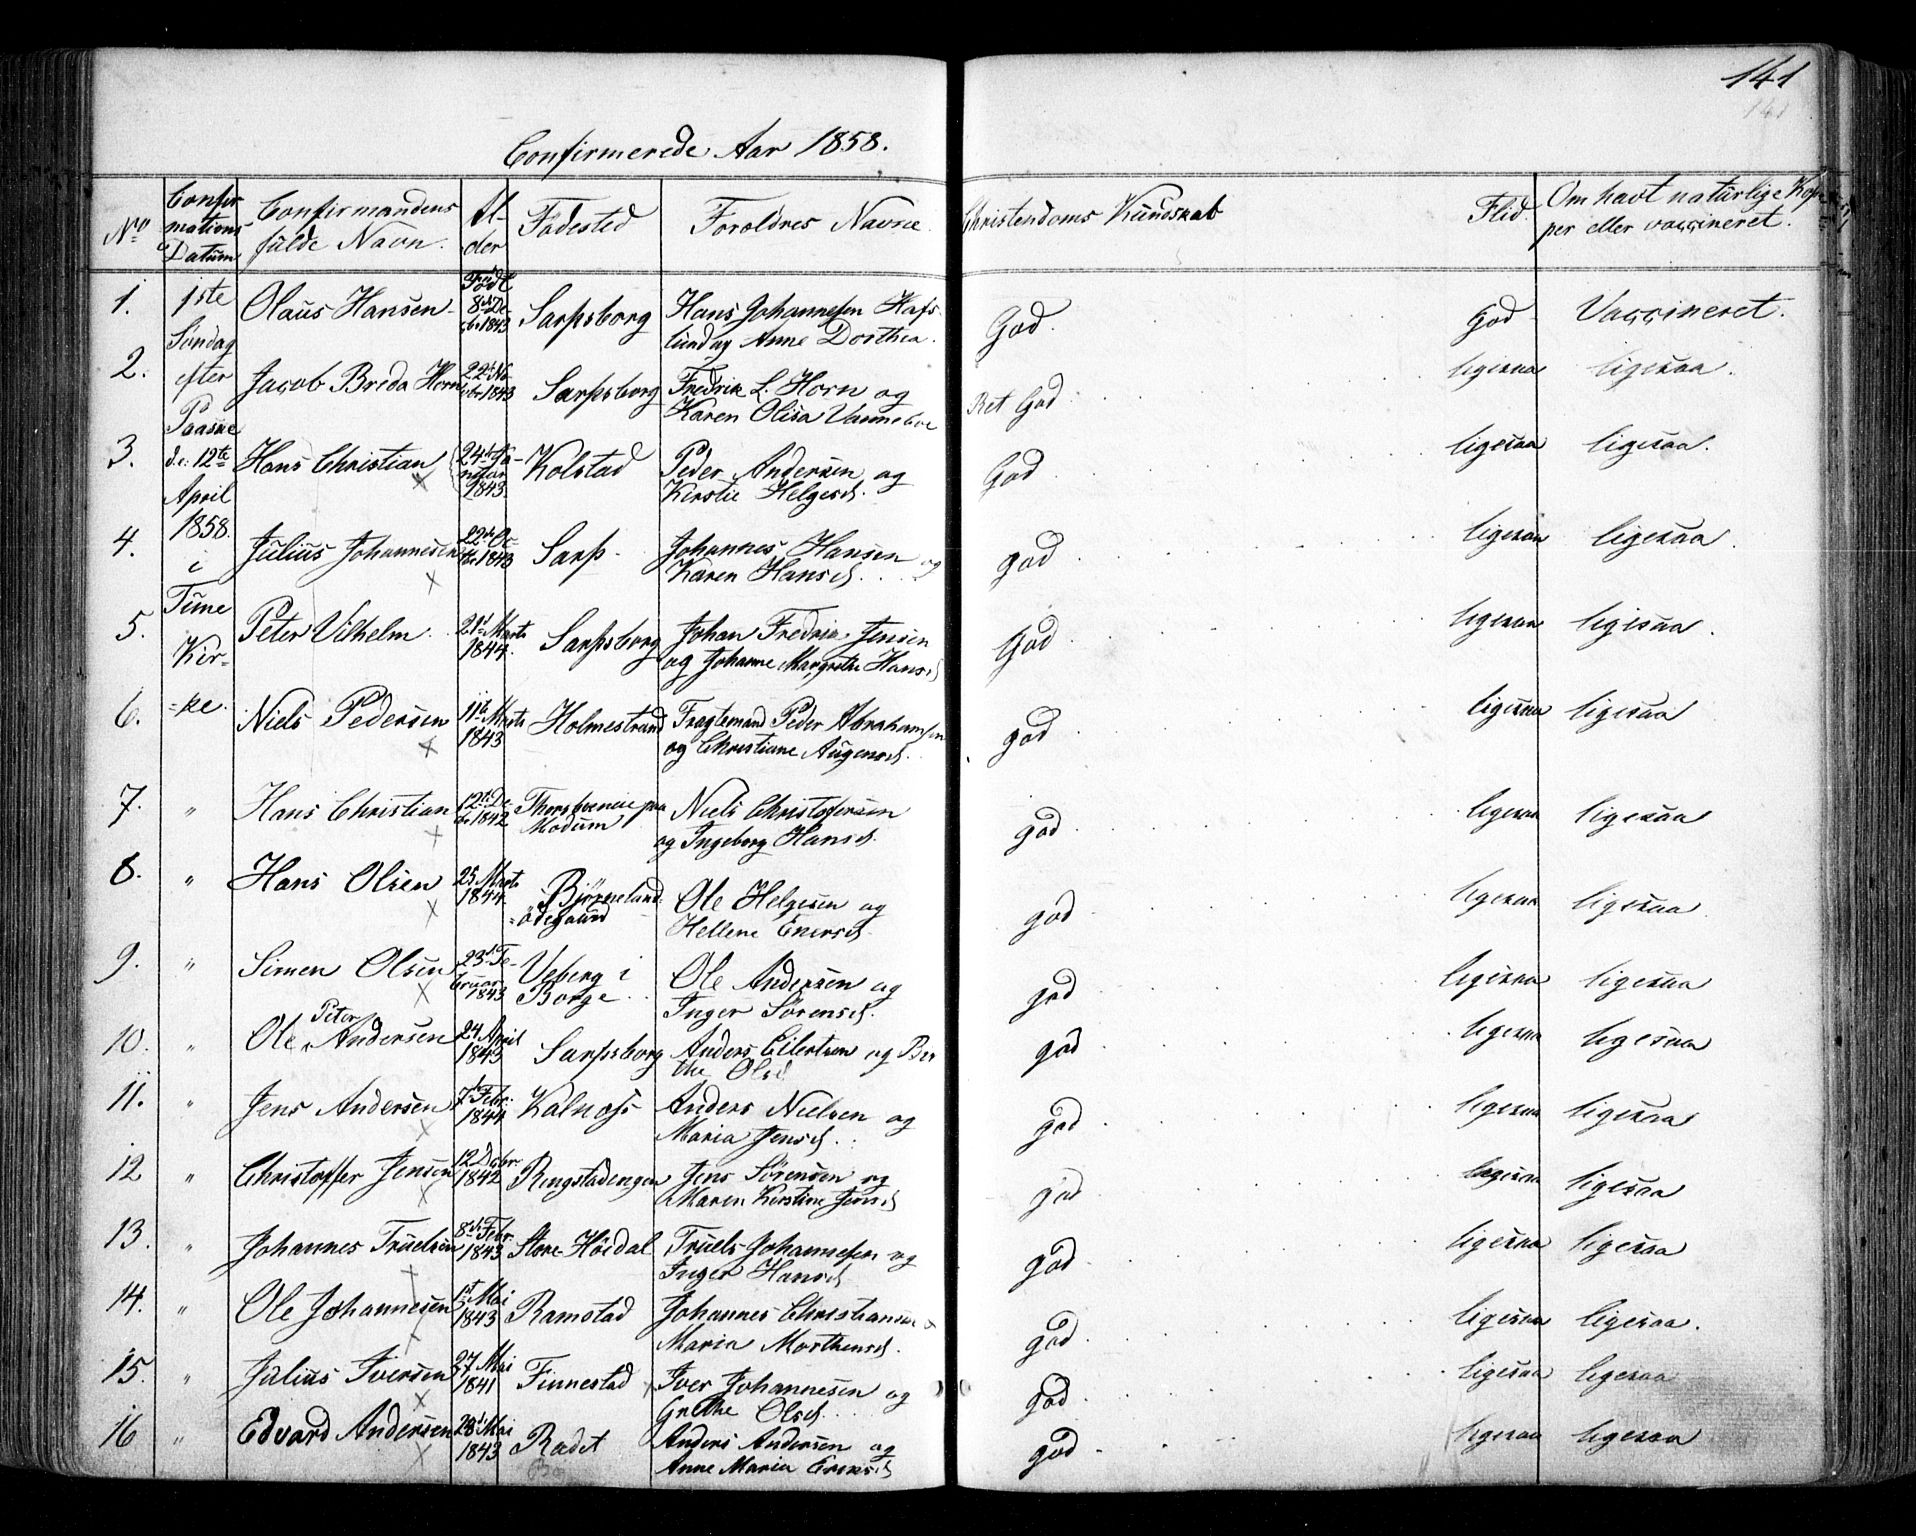 141
141
Confirmerede Aar 1858.
No Confirmations Datum Confirmandens fulde Navn. Alder Födested Foroldres Navne. Christendoms Kundskab Flid. Om havt naturlige Kopper eller vaccineret.
1. 1ste Olaus Hansen Födt 8de Decbr 1843 Sarpsborg Hans Johannesen Hafslund og Anne Dorthea. God. God Vaccineret.
Söndag
2. efter Jacob Breda Horn 22de Novbr 1843 Sarpsborg Fredrik L. Horn og Karen Olisa Ret God ligesaa ligesaa.
Paaske
3. d.e: 12te Hans Christian 24de Januar 1843 Kolstad Peder Andersen og Kirstie Helgesd. God ligesaa ligesaa.
April
1858.
4. i Julius Johannesen 22de Octbr 1843 Sarp. Johannes Hansen og Karen Hansd. god ligesaa ligesaa.
Tune
5. Peter Vilhelm. 21de Marts 1844. Sarpsborg Johan Fredrik Jensen og Johanne Margrethe Hansd God ligesaa ligesaa.
Kir=
6. =ke. Niels Pedersen 11te Marts 1843 Holmestrand Fragtemand Peder Abrahamsen og Christiane Augensd. god ligesaa ligesaa
7. " Hans Christian 12te Decbr 1842 paa Modum Niels Christofersen og Ingeborg Hansd. god ligesaa ligesaa
8. " Hans Olsen 25 Marts 1844. Björneland =ödegaard Ole Helgesen og Hellene Enersd. god ligesaa ligesaa
9. " Simen Olsen 23de Februar 1843 Veberg i Borge Ole Andersen og Inger Sörensd. god ligesaa ligesaa
10. " Ole Peter Andersen 24 April 1843 Sarpsborg Anders Eilertsen og Berthe Olsd god ligesaa ligesaa
11. " Jens Andersen 7de Febr: 1844 Kalnæs Anders Nielsen og Maria Jensd. god ligesaa ligesaa
12 " Christoffer Jensen 12 Decbr 1842 Ringstadengen Jens Sörensen og Maren Kirstine Jensd god ligesaa ligesaa
13. " Johannes Truelsen 8de Febr. 1843 Store Höidal Truels Johannesen og Inger Hansd god ligesaa ligesaa
14. " Ole Johannesen 1st Mai 1843 Ramstad Johannes Christiansen & Maria Morthensd. god ligesaa ligesaa.
15. " Julius Iversen 27 Mai 1841 Finnestad Iver Johannesen og Grethe Olsd. god ligesaa ligesaa
16 " Edvard Andersen 28de Mai 1843 Rodet Anders Andersen og Anne Maria Eriksd god ligesaa ligesaa